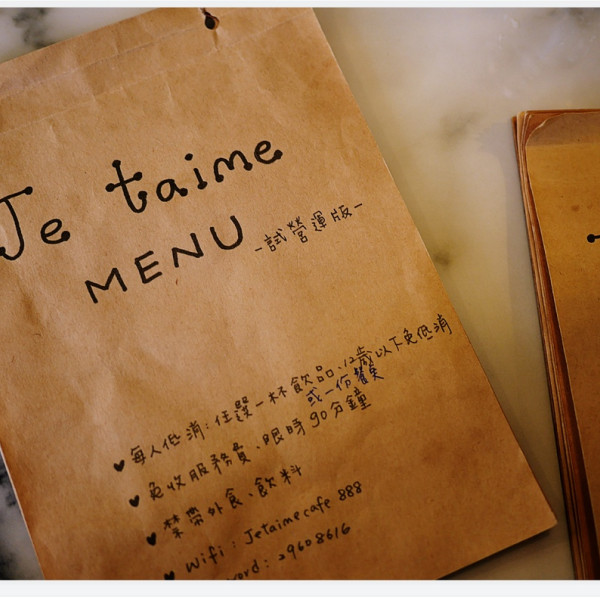 Je taime
MENU -試營運版-
♥ 每人低消:任選一杯飲品、12歲以下免低消
或一份餐
♥ 免收服務費、限時90分鐘
♥ 禁帶外食、飲料
♥ Wifi : Jetaimecafe 888
word: 29608616